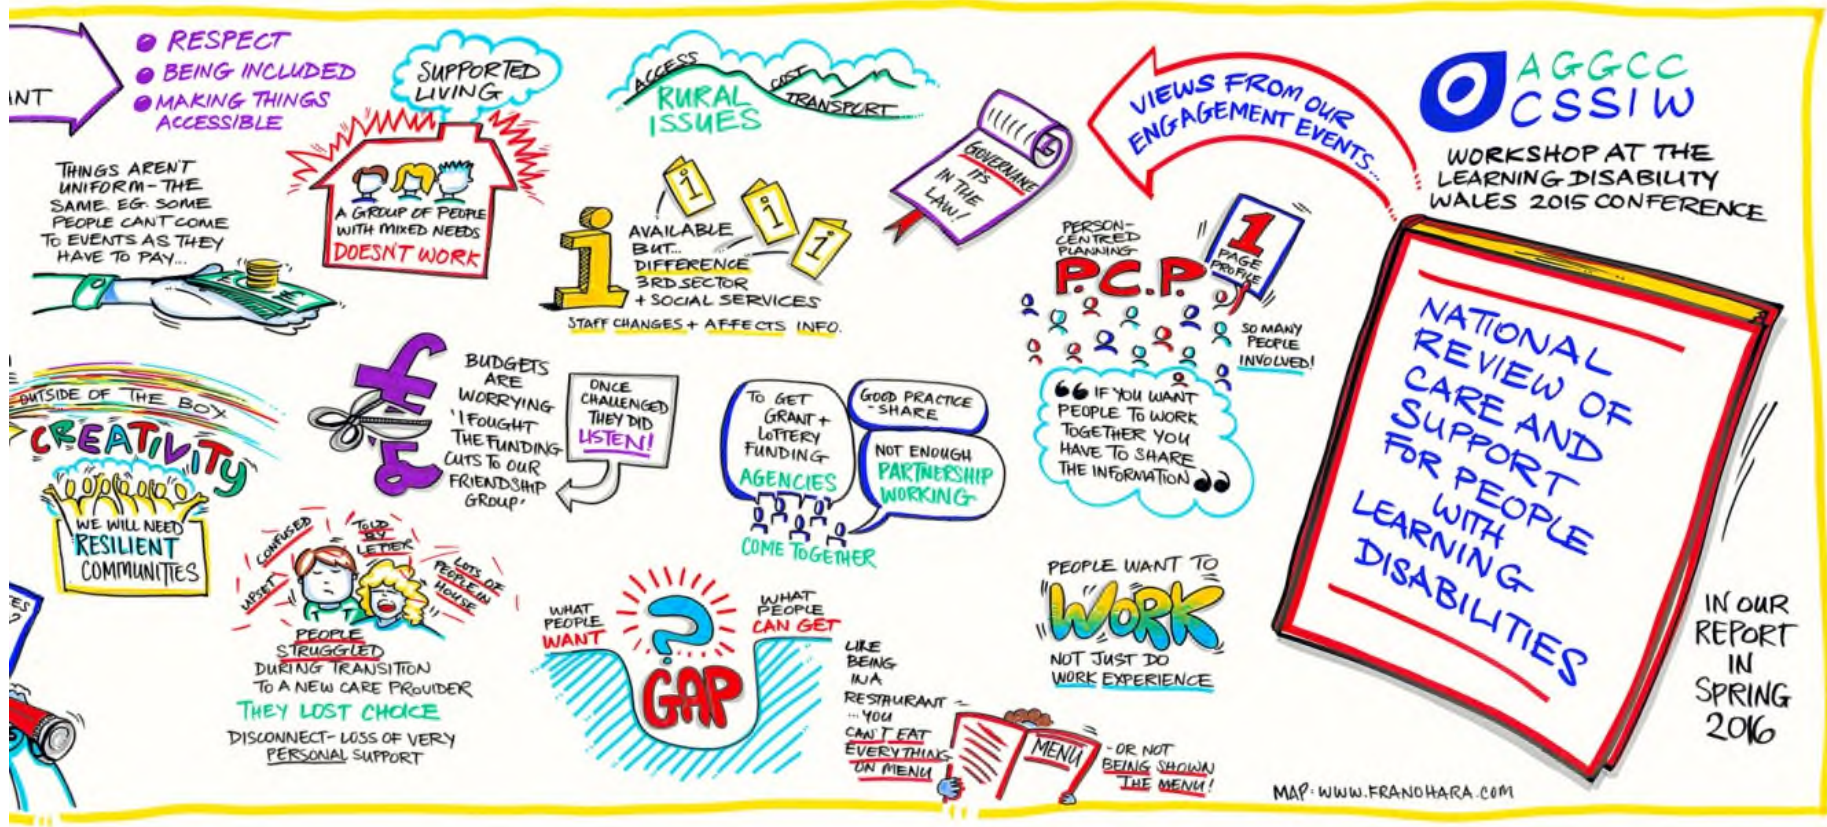 ANT
RESPECT
BEING INCLUDED
MAKING THINGS
ACCESSIBLE
THINGS AREN'T
UNIFORM - THE
SAME. EG. SOME
PEOPLE CANT COME
TO EVENTS AS THEY
HAVE TO PAY...
SUPPORTED
LIVING
A GROUP OF PEOPLE
WITH MIXED NEEDS
DOESN'T WORK
ACCESS
COST
TRANSPORT
RURAL
ISSUES
i
i
i
i
AVAILABLE
BUT...
DIFFERENCE
3RD SECTOR
+ SOCIAL SERVICES
STAFF CHANGES + AFFECTS INFO.
GOVERNANCE
ITS
IN THE
LAW!
VIEWS FROM OUR
ENGAGEMENT EVENTS...
AGGCC
CSSIW
WORKSHOP AT THE
LEARNING DISABILITY
WALES 2015 CONFERENCE
PERSON-
CENTRED
PLANNING
P.C.P.
1
PAGE
PROFILE
SO MANY
PEOPLE
INVOLVED!
“ IF YOU WANT
PEOPLE TO WORK
TOGETHER YOU
HAVE TO SHARE
THE INFORMATION ”
NATIONAL
REVIEW OF
CARE AND
SUPPORT
FOR PEOPLE
WITH
LEARNING
DISABILITIES
IN OUR
REPORT
IN
SPRING
2016
OUTSIDE OF THE BOX
CREATIVITY
WE WILL NEED
RESILIENT
COMMUNITIES
££
BUDGETS
ARE
WORRYING
'I FOUGHT
THE FUNDING
CUTS TO OUR
FRIENDSHIP
GROUP.'
ONCE
CHALLENGED
THEY DID
LISTEN!
TO GET
GRANT +
LOTTERY
FUNDING
AGENCIES
GOOD PRACTICE
- SHARE
NOT ENOUGH
PARTNERSHIP
WORKING
COME TOGETHER
UPSET
CONFUSED
TOLD
BY
LETTER
LOTS OF
PEOPLE IN
HOUSE
PEOPLE
STRUGGLED
DURING TRANSITION
TO A NEW CARE PROVIDER
THEY LOST CHOICE
DISCONNECT - LOSS OF VERY
PERSONAL SUPPORT
WHAT
PEOPLE
WANT
?
GAP
WHAT
PEOPLE
CAN GET
LIKE
BEING
IN A
RESTAURANT -
... YOU
CAN'T EAT
EVERYTHING
ON MENU
MENU
- OR NOT
BEING SHOWN
THE MENU!
PEOPLE WANT TO
WORK
NOT JUST DO
WORK EXPERIENCE
ES
?
MAP: WWW.FRANOHARA.COM